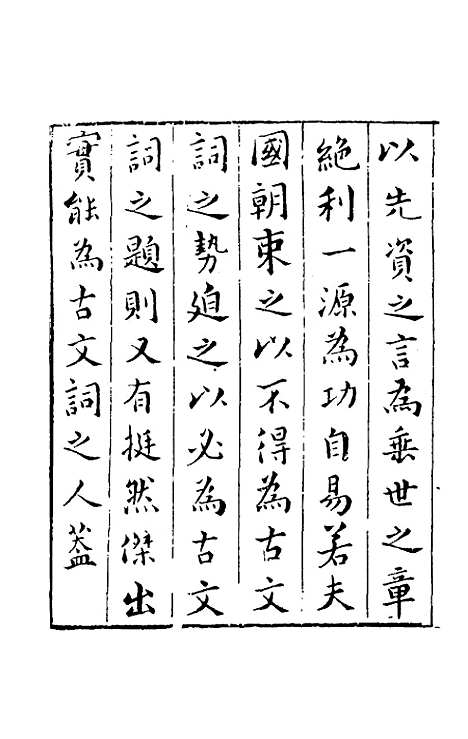 以先資之言為垂世之章
絕利一源為功自易若夫
國朝束之以不得為古文
詞之勢廹之以必為古文
詞之題則又有挺然傑出
實能為古文詞之人葢